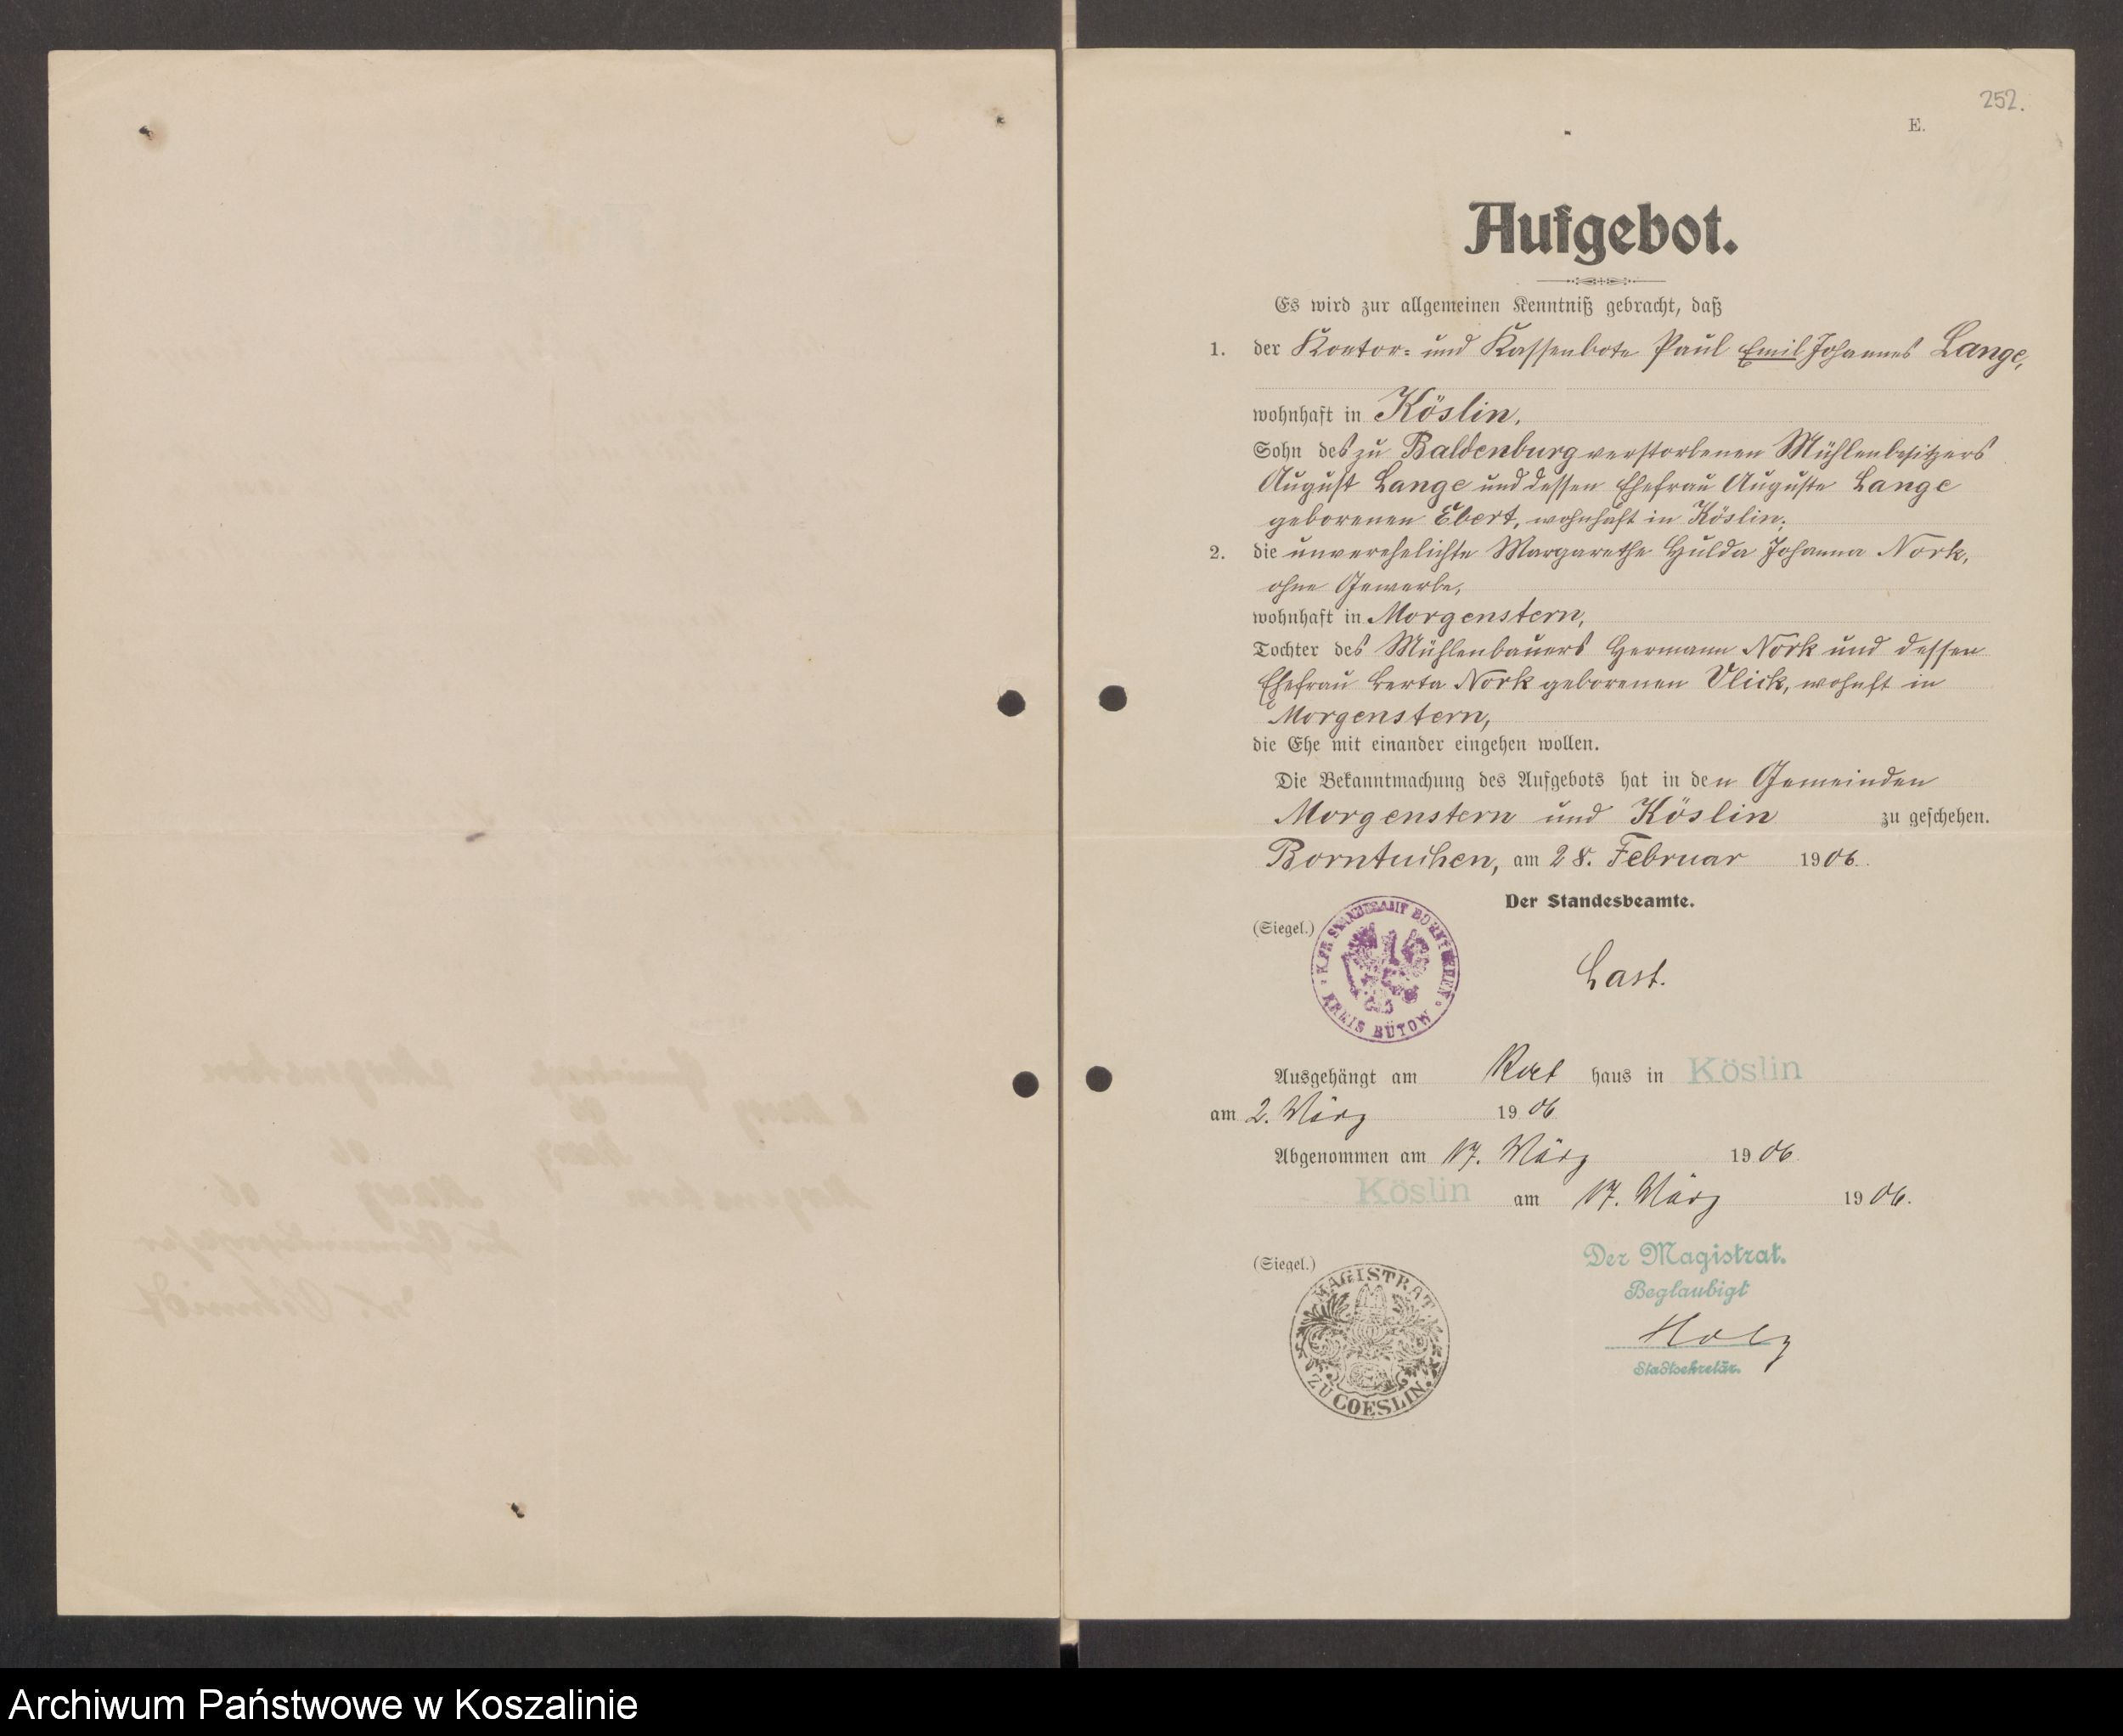 252.
E.
Aufgebot.
Es wird zur allgemeinen Kenntniß gebracht, daß
1. der Kontor- und Kassenbote Paul Emil Johannes Lange,
wohnhaft in Köslin,
Sohn des zu Baldenburg verstorbenen Mühlenbesitzers
August Lange und dessen Ehefrau Auguste Lange
geborenen Ebert, wohnhaft in Köslin;
2. die unverehelichte Margarethe Hulda Johanna Nork,
ohne Gewerbe,
wohnhaft in Morgenstern,
Tochter des Mühlenbauers Hermann Nork und dessen
Ehefrau Berta Nork geborenen Ulick, wohnft in
Morgenstern,
die Ehe mit einander eingehen wollen.
Die Bekanntmachung des Aufgebots hat in den Gemeinden
Morgenstern und Köslin zu geschehen.
Borntuchen, am 28. Februar 1906.
Der Standesbeamte.
(Siegel.)
K. PR. STANDESAMT BORNTUCHEN
KREIS BÜTOW
Last.
Ausgehängt am Rat haus in Köslin
am 2. März 1906
Abgenommen am 17. März 1906.
Köslin am 17. März 1906.
(Siegel.)
MAGISTRAT
ZU COESLIN.
Der Magistrat.
Beglaubigt
Holz
Stadtsekretär.
Archiwum Państwowe w Koszalinie